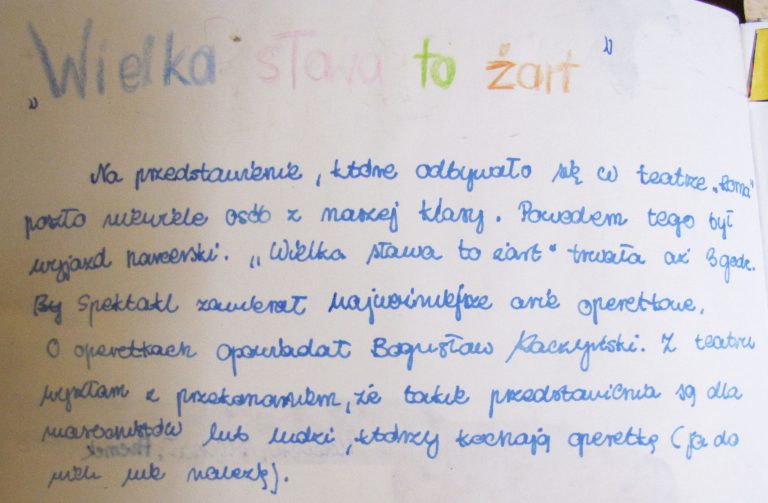 "Wielka sława to żart"
Na przedstawienie, które odbywało się w teatrze „Roma"
poszło niewiele osób z naszej klasy. Powodem tego był
wyjazd harcerski. „Wielka sława to żart" trwała aż 3 godz.
By Spektakl zawierał najważniejsze arie operetkowe.
O operetkach opowiadał Bogusław Kaczyński. Z teatru
wyszłam z przekonaniem, że takie przedstawienia są dla
marzonistów lub ludzi, którzy kochają operetkę (ja do
nich nie należę).